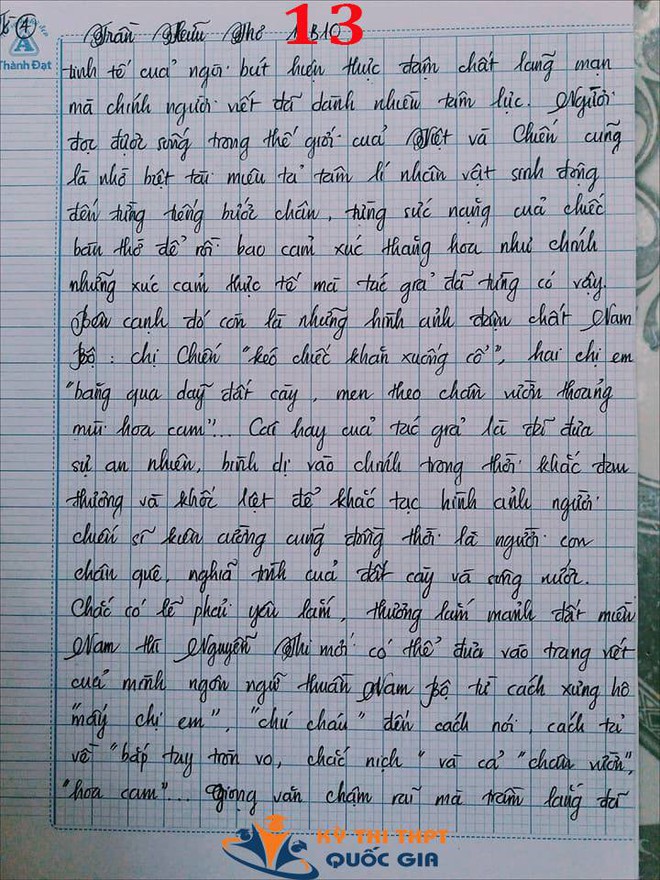 13
Trần Hữu Thơ 11B10
A
Thành Đạt
tinh tế của ngòi bút hiện thực đậm chất lãng mạn
mà chính người viết đã dành nhiều tâm lực. Người
đọc được sống trong thế giới của Việt và Chiến cũng
là nhờ bật tài miêu tả tâm lí nhân vật sinh động
đến từng tiếng bước chân, từng sức nặng của chiếc
bàn thờ để rồi bao cảm xúc thăng hoa như chính
những xúc cảm thực tế mà tác giả đã từng có vậy.
Bên cạnh đó còn là những hình ảnh đậm chất Nam
Bộ: chị Chiến "kéo chiếc khăn xuống cổ", hai chị em
"băng qua dãy đất cày, men theo chân vườn thoảng
mùi hoa cam"... Cái hay của tác giả là đã đưa
sự an nhiên, bình dị vào chính trong thời khắc đau
thương và khốc liệt để khắc tạc hình ảnh người
chiến sĩ kiên cường cũng đồng thời là người con
chân quê, nghĩa tình của đất cày và sông nước.
Chắc có lẽ phải yêu lắm, thương lắm mảnh đất miền
Nam thì Nguyễn Thi mới có thể đưa vào trang viết
của mình ngôn ngữ thuần Nam Bộ từ cách xưng hô
"mấy chị em", "chú cháu" đến cách nói, cách tả
về "bắp tay tròn vo, chắc nịch" và cả "chân vườn",
"hoa cam"... Giọng văn chậm rãi mà trầm lắng đã
KỲ THI THPT
QUỐC GIA